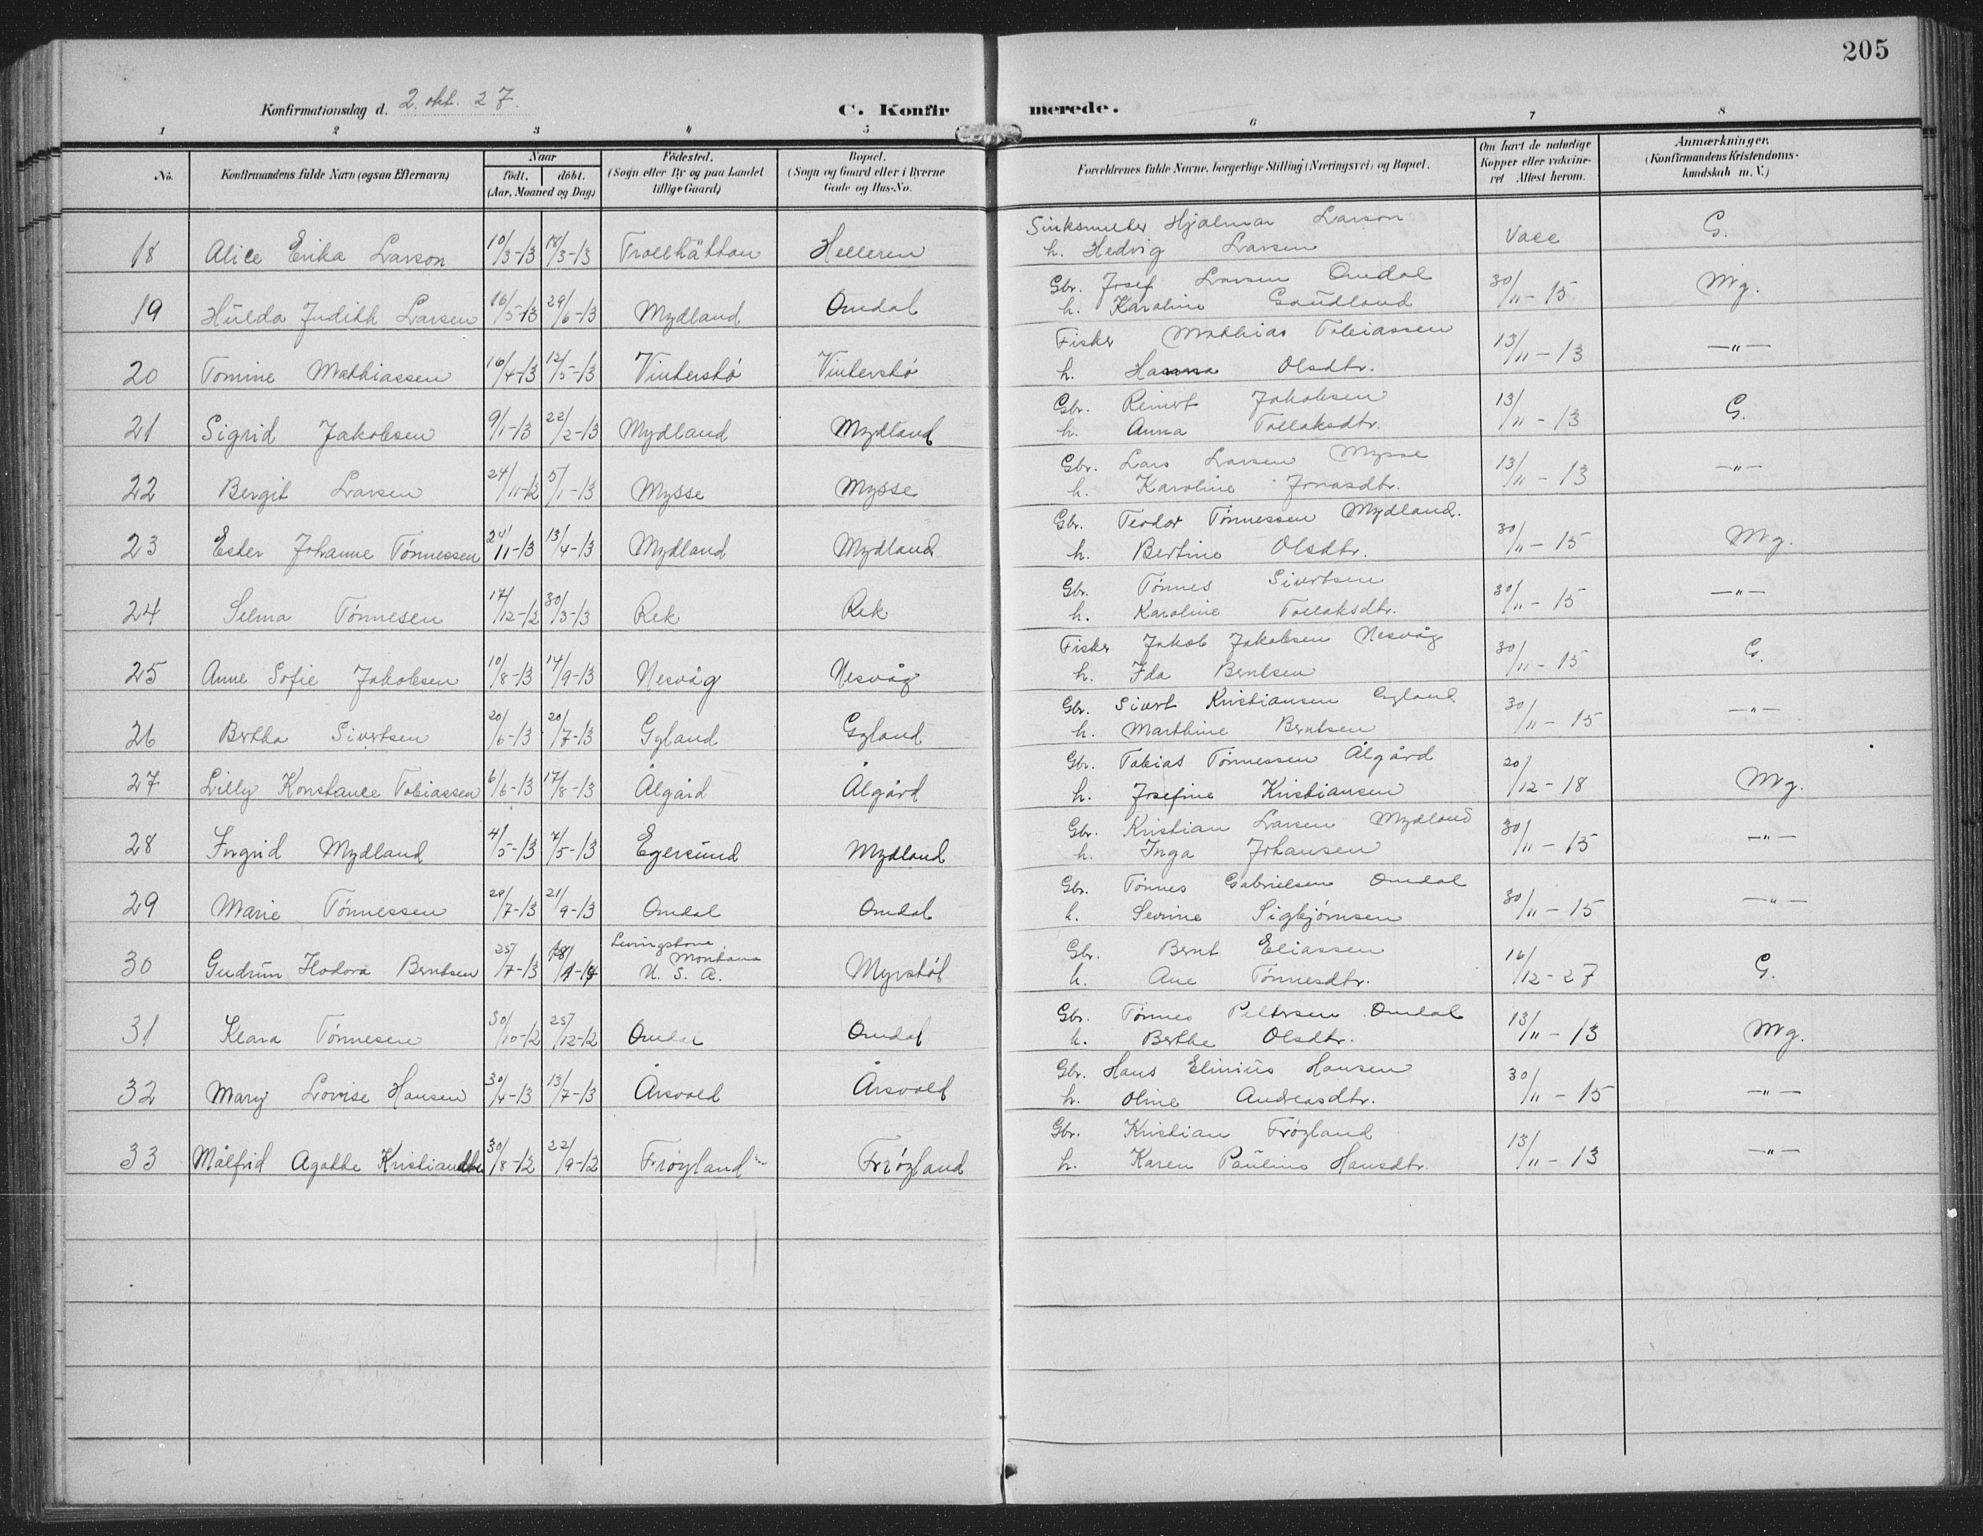 205
Konfirmationsdag d. 2. okt. 27. C. Konfirmerede.
1 2 3 4 5 6 7 8
No. Konfirmandens fulde Navn (ogsaa Efternavn) Naar födt. döbt. (Aar, Maaned og Dag) Födested. (Sogn eller By og paa Landet tillige Gaard) Bopæl. (Sogn og Gaard eller i Byerne Gade og Hus-No. Forældrenes fulde Navne, borgerlige Stilling (Næringsvei) og Bopæl. Om havt de naturlige Kopper eller vakcineret Attest herom. Anmærkninger. (Konfirmandens Kristendomskundskab m. V.)
18 Alice Erika Larson 10/3-13 18/3-13 Trollhättan Helleren Hjalmar Larson Vacc G.
h. Hedvig Larsen
19 Hulda Judith Larsen 16/5-13 29/6-13 Mydland Omdal Gbr. Josef Larsen Omdal 30/11-15 Mg.
h. Karoline Gaudland
20 Tomine Mathiassen 16/4-13 12/5-13 Vinterstø Vinterstø Fisker Mathias Tobiassen 13/11-13 -"-
h. Hanna Olsdtr.
21 Sigrid Jakobsen 9/1-13 22/2-13 Mydland Mydland Gbr. Reinert Jakobsen 13/11-13 G.
h. Anna Tollaksdtr.
22 Bergit Larsen 24/11-12 5/1-13 Mysse Mysse Gbr. Lars Larsen Mysse 13/11-13 -"-
h. Karoline Jonasdtr.
23 Ester Johanne Tønnessen 24/11-13 13/4-13 Mydland Mydland Gbr. Teodor Tønnessen Mydland. 30/11-15 Mg.
h. Bertine Olsdtr.
24 Selma Tønnesen 17/12-12 30/3-13 Rek Rek Gbr. Tønnes Sivertsen 30/11-15 -"-
h. Karoline Tollaksdtr.
25 Anne Sofie Jakobsen 10/8-13 14/9-13 Nesvåg Nesvåg Fisker Jakob Jakobsen Nesvåg 30/11-15 G.
h. Ida Berntsen
26 Bertha Sivertsen 20/6-13 20/7-13 Gyland Gyland Gbr. Sivert Kristiansen Gyland 30/11-15 -"-
h. Marthine Berntsen
27 Lilly Konstance Tobiassen 6/6-13 17/8-13 Ålgård Ålgård Gbr. Tobias Tønnessen Ålgård 20/12-18 Mg.
h. Josefine Kristiansen
28 Ingrid Mydland 4/5-13 7/5-13 Egersund Mydland Gbr. Kristian Larsen Mydland 30/11-15 -"-
h. Inga Johansen
29 Marie Tønnessen 20/7-13 21/9-13 Omdal Omdal Gbr. Tønnes Gabrielsen Omdal 30/11-15 -"-
h. Sevrine Sigbjørnsen
30 Gudrun Hodora Berntsen 25/7-13 Levingstone Montana U. S. A. Myrstøl Gbr. Bernt Eliassen 16/12-27 G.
h. Ane Tønnesdtr.
31 Klara Tønnesen 30/10-12 25/12-12 Omdal Omdal Gbr. Tønnes Pettersen Omdal 13/11-13 Mg.
h. Berthe Olsdtr.
32 Mary Lovise Hansen 30/4-13 13/7-13 Årsvold Årsvold Gbr. Hans Elinius Hansen 30/11-15 -"-
h. Oline Andreasdtr.
33 Målfrid Agathe Kristiansdtr 30/8-12 22/9-12 Frøyland Frøyland Gbr. Kristian Frøyland 13/11-13 -"-
h. Karen Pauline Hansdtr.